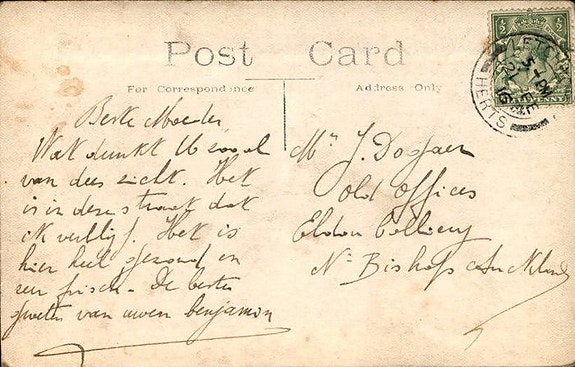 Post Card
For Correspondence
Address Only
LETCHW
HERTS
16
Beste Moeder,
Wat dunkt U zooal
van dees zicht. Het
is in deze straat dat
ik verblijf. Het is
hier heel gezond en
zeer frisch - De beste
groeten van uwen benjamin
Mr J. Dossaer
Old Offices
Eldon Colliery
Nr Bishops Auckland